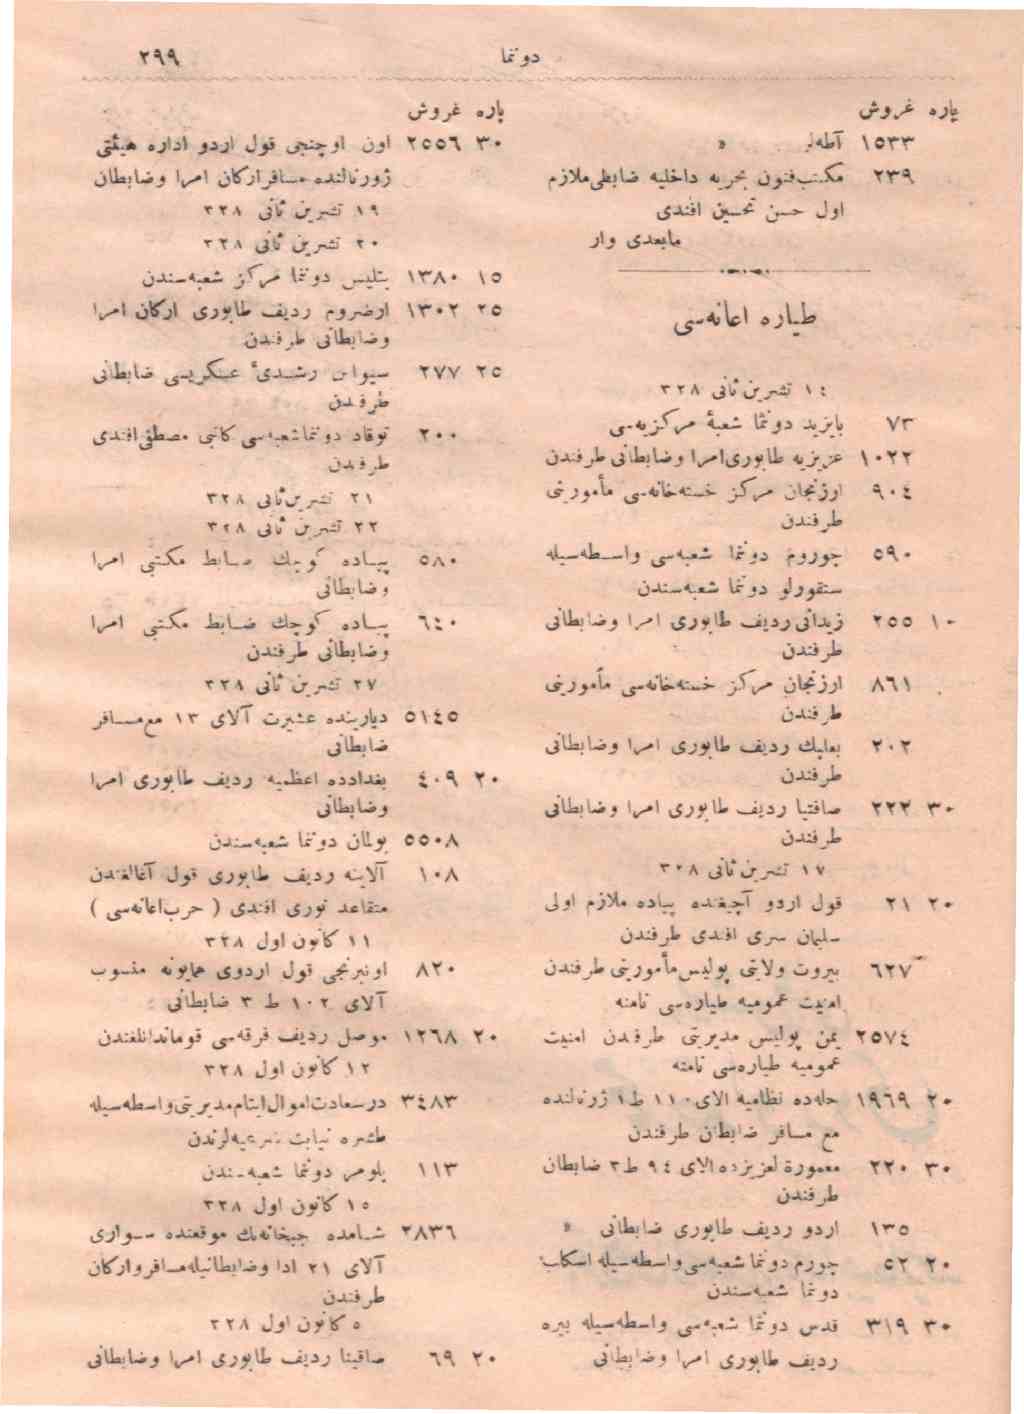 دوننما
٢٩٩
پاره غروش
١٥٣٣ آطه‌لر »
٢٣٩ مكتب فنون بحريه داخليه ضابطی ملازم
اول حسن تحسين افندی
مابعدی وار
طياره اعانه‌سی
١٤ تشرين ثانی ٣٢٨
٧٣ بايزيد دوننما شعبهٔ مركزيه‌سی
١٠٢٢ عزيزيه طابوری امرا وضابطانی طرفندن
٩٠٤ ارزنجان مركز خسته‌خانه‌سی مأمورينی
طرفندن
٥٩٠ چوروم دوننما شعبه‌سی واسطه‌سيله
سنقورلو دوننما شعبه‌سندن
١٠ ٢٥٥ زيدانی رديف طابوری امرا وضابطانی
طرفندن
٨٦١ ارزنجان مركز خسته‌خانه‌سی مأمورينی
طرفندن
٢٠٢ بعلبك رديف طابوری امرا وضابطانی
طرفندن
٣٠ ٢٢٢ صافيتا رديف طابوری امرا وضابطانی
طرفندن
١٧ تشرين ثانی ٣٠٨
٢٠ ٢١ قول اردو آچيغنده پياده ملازم اولی
سليمان سری افندی طرفندن
٦٢٧ بيروت ولايتی پوليس مأمورينی طرفندن
امنيت عموميه طياره‌سی نامنه
٢٥٧٤ يمن پوليس مديريتی طرفندن امنيت
عموميه طياره‌سی نامنه
٢٠ ١٩٦٩ حله‌ده نظاميه الای ١١٠ ط ١ ژورنالنده
مع مسافر ضابطان طرفندن
٣٠ ٢٢٠ معمورة لعزيزده الای ٩٤ ط ٣ ضابطان
طرفندن
١٣٥ اردو رديف طابوری ضابطانی »
٢٠ ٥٢ چورم دوننما شعبه‌سی واسطه‌سيله اسكليب
دوننما شعبه‌سندن
٣٠ ٣١٩ قدس دوننما شعبه‌سی واسطه‌سيله بيره
رديف طابوری امرا وضابطانی
پاره غروش
٣٠ ٢٥٥٦ اون اوچنجی قول اردو اداره هيئتی
ژورنالنده مسافر اركان امرا وضابطان
١٩ تشرين ثانی ٣٢٨
٢٠ تشرين ثانی ٣٢٨
١٥ ١٣٨٠ بتليس دوننما مركز شعبه‌سندن
٢٥ ١٣٠٢ ارضروم رديف طابوری اركان امرا
وضابطانی طرفندن
٢٥ ٢٧٧ سيواس رشديهٔ عسكريسی ضابطانی
طرفندن
٢٠٠ توقاد دوننما شعبه‌سی كاتبی مصطفی افندی
طرفندن
٢١ تشرين ثانی ٣٢٨
٢٢ تشرين ثانی ٣٢٨
٥٨٠ پياده كوچك ضابط مكتبی امرا
وضابطانی
٦٤٠ پياده كوچك ضابط مكتبی امرا
وضابطانی طرفندن
٢٧ تشرين ثانی ٣٢٨
٥١٤٥ ديارينده عشيرت آلای ١٣ مع مسافر
ضابطانی
٢٠ ٤٠٩ بغدادده اعظميه رديف طابوری امرا
وضابطانی
٥٥٠٨ يومان دوننما شعبه‌سندن
١٠٨ آلاينه رديف طابوری قول آغالغندن
متقاعد نوری افندی ( حرب اعانه‌سی )
١١ كانون اول ٣٢٨
٨٢٠ اونبرنجی قول اردوی همايونه منسوب
آلای ١٠٢ ط ٣ ضابطانی
٢٠ ١٢٦٨ موصل رديف فرقه‌سی قومانداننلغندن
١٢ كانون اول ٣٢٨
٣٤٨٣ درسعادت اموال ايتام مديريتی واسطه‌سيله
طشره نيابت شرعيه‌لرندن
١١٣ يلومر دوننما شعبه‌سندن
١٥ كانون اول ٣٢٨
٢٨٣٦ شامده جبخانه‌نك موقعنده سواری
آلای ٢١ ادا وضابطانيله مسافر واركان
طرفندن
٥ كانون اول ٣٢٨
٢٠ ٦٩ صافيتا رديف طابوری امرا وضابطانی